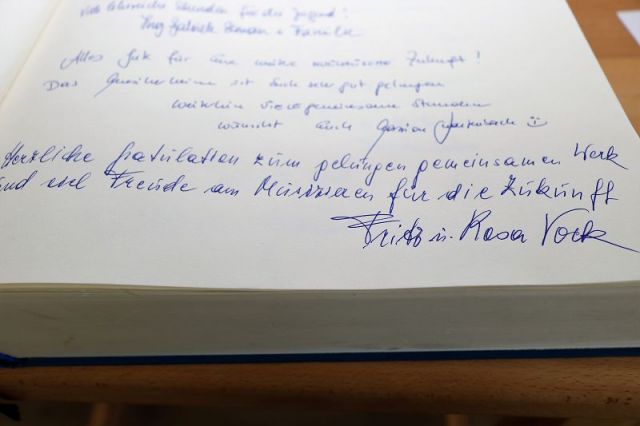 viele lehrreiche Stunden für die Jugend!
Ing. Gabriele + Familie
Alles Gute für eine weitere musikalische Zukunft!
Das ist Euch sehr gut gelungen
weiterhin viele gemeinsame Stunden
wünscht auch
Herzliche Gratulation zum gelungen gemeinsamen Werk
und viel Freude am Musizieren für die Zukunft
Fritz u. Rosa Vock